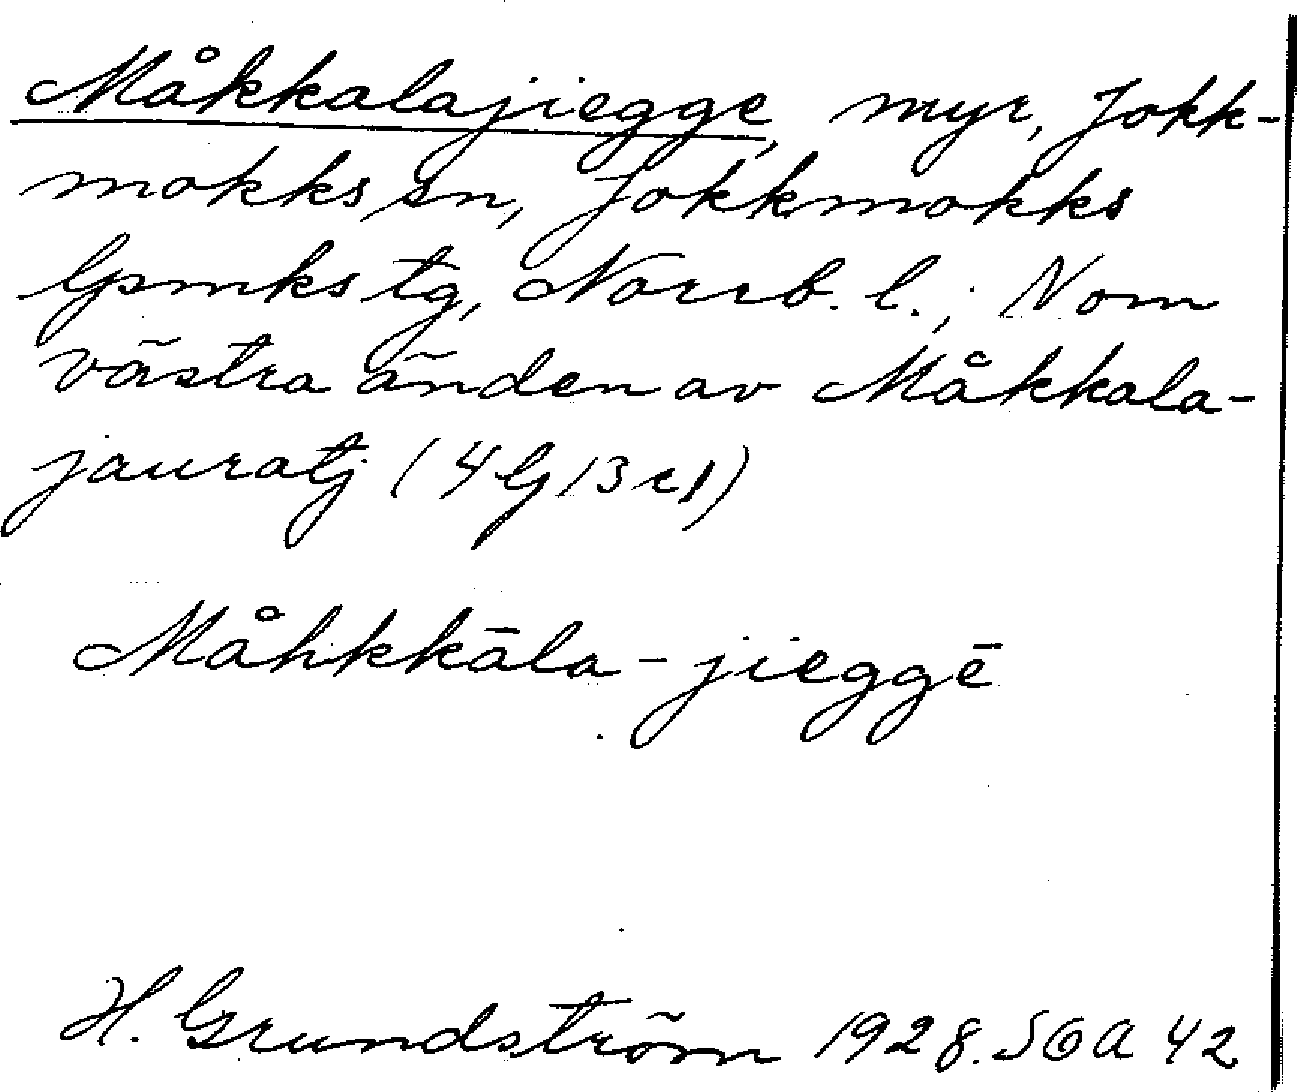 Måkkalajiegge, myr, Jokk-
mokks sn, Jokkmokks
lpmks tg, Norrb. l.; N om
västra änden av Måkkala-
jauratj (4 G 13 c 1)
Måhkkāla-jieggē
H. Grundström 1928. SOA 42